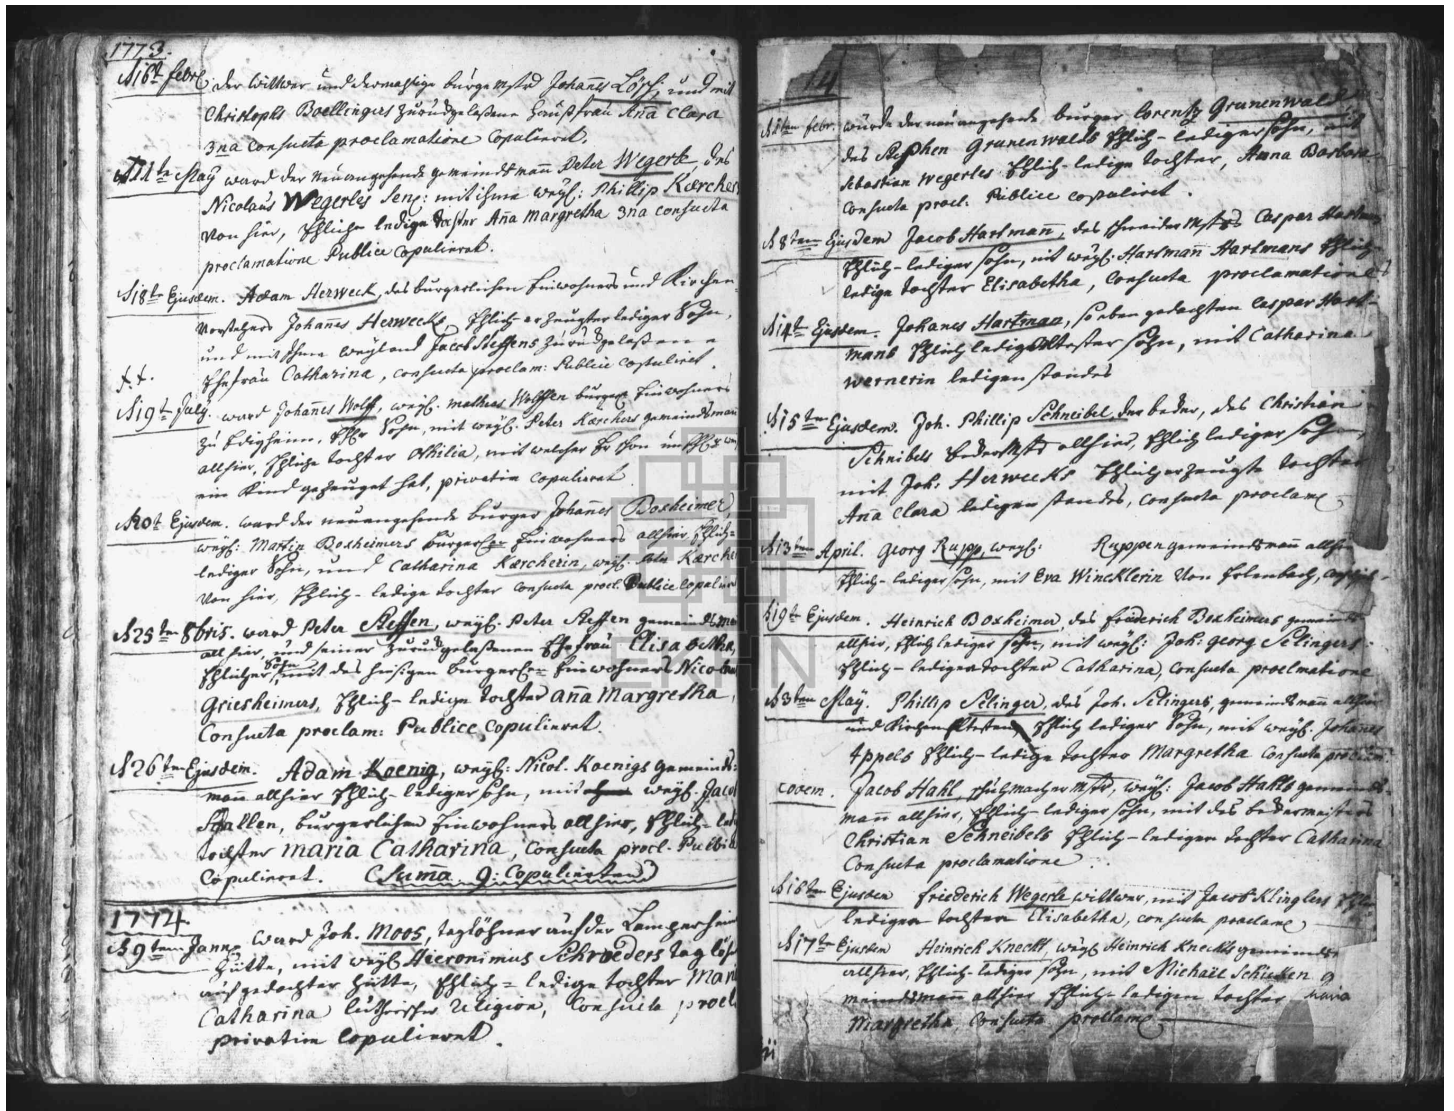 1773.
d 16t. febr. der Wittwer und dermahlige burgemstr Johannes Lösch, und mit
Christoph Boellingers zurückgelaßene Haußfrau Anna Clara
3na consueta proclamatione Copulieret.
11te May ward der Neuangehende gemeindsmann Peter Wegerle des
Nicolaus Wegerles Sen: mit ihme weyl: Phillip Kærchers
von hier, Ehlich ledige tochter Anna Margretha 3na consueta
proclamatione Publice Copulieret.
d 18t Ejusdem. Adam Herweck, des burgerlichen Einwohners und Kirchen-
Vorstehers Johannes Herwecks Ehlich erzeugter lediger Sohn,
und mit Ihme weyland Jacob Steffens zurückgelaßene
Ehefrau Catharina, consueta proclam: Publice copuliret.
d 19t July. ward Johannes Wolff, weyl. Mathias Wolffen burger Einwohners
zu Edigheim, Ehl. Sohn, mit weyl. Peter Kærchers gemeindsmann
allhier, Ehliche tochter Othilia, mit welcher Er schon
ein Kind gezeuget hat, privatim copulieret.
d 20t Ejusdem. ward der neuangehende burger Johannes Boxheimer,
weyl. Martin Boxheimers burgerl= Einwohners allhier Ehlich=
lediger Sohn, und Catharina Kærcherin, weyl. Peter Kærche
von hier, Ehlich- ledige tochter consueta procl. Publice copulier
d 25ten 8bris. ward Peter Steffen, weyl: Peter Steffen gemeindsma
allhier, und seiner zurückgelaßenen Ehefrau Elisabetha,
Ehlicher Sohn, mit des hiesigen burgerl= Einwohners Nicola
Griesheimers, Ehlich- ledige tochter Anna Margretha,
Consueta proclam: Publice Copulieret.
d 26ten Ejusdem. Adam Koenig, weyl: Nicol. Koenigs gemeinds=
mann allhier Ehlich- lediger sohn, mit weyl. Jacob
burgerlichen Einwohners allhier, Ehlich- led
tochter Maria Catharina, Consueta procl. Public
Copulieret. (Suma 9: Copulierten)
1774
d 9ten Janr. ward Joh. Moos, taglöhner auf der Lamperheim
hütte, mit weyl Hieronimus Schroeders taglöh
auf gedachter hütte, Ehlich= ledige tochter Mari
Catharina lutherischer Religion, Consueta procl
privatim Copulieret.
74
d 1ten febr. wurde der neuangehende burger Lorentz Grunenwald
des Stephen Grunenwalds Ehlich- lediger sohn, mit
Sebastian Wegerles Ehlich- ledige tochter, Anna Barbara
Consueta procl: Publice copuliret.
d 8ten Ejusdem Jacob Hartmann, des schneider Mstrs Caspar Hartm
Ehlich- lediger sohn, mit weyl. Hartmann Hartmans Ehlich-
ledige tochter Elisabetha, Consueta proclamatione
d 14t Ejusdem. Johanes Hartman, so eben gedachten Caspar Hart-
mans Ehlich lediger sohn, mit Catharina
wernerin ledigen standes
d 15ten Ejusdem. Joh. Phillip Schneibel der beder, des Christian
Schnibels bedermstr allhier, Ehlich lediger sohn,
mit Joh: Herwecks Ehlich erzeugte tochter
Anna Clara ledigen standes, Consueta proclame
d 13ten April. Georg Rupp, weyl: Ruppen gemeindsmann allhier
Ehlich- lediger sohn, mit Eva Wincklerin von Erlenbach,
d 19t Ejusdem. Heinrich Boxheimer, des friederich Boxheimers gemeinds
allhier, Ehlich lediger sohn, mit weyl: Joh: georg Selingers
Ehlich- ledigen tochter Catharina, Consueta proclmatione
d 3ten May. Phillip Selinger, des Joh. Selingers, gemeindsmann allhier
und Kirchen Eltesten Ehlich lediger Sohn, mit weyl. Johannes
Appels Ehlich- ledige tochter Margretha Consueta proclam
eodem. Jacob Hahl, schuhmacher Mstr, weyl: Jacob Hahls gemeinds-
mann allhier, Ehlich- lediger sohn, mit des bedermeisters
Christian Schneibels Ehlich- ledigen tochter Catharina
Consueta proclamatione
d 16ten Ejusden friederich Wegerle wittwer, mit Jacob Klinglers Ehl
ledigen tochter Elisabetha, consueta proclame
d 17ten Ejusden Heinrich Knecht, weyl Heinrich Knechts gemeinds
allhier, Ehlich- lediger sohn, mit Michael g
meindsmann allhier Ehlich- ledigen tochter Maria
Margretha, Consueta proclame
EKHN